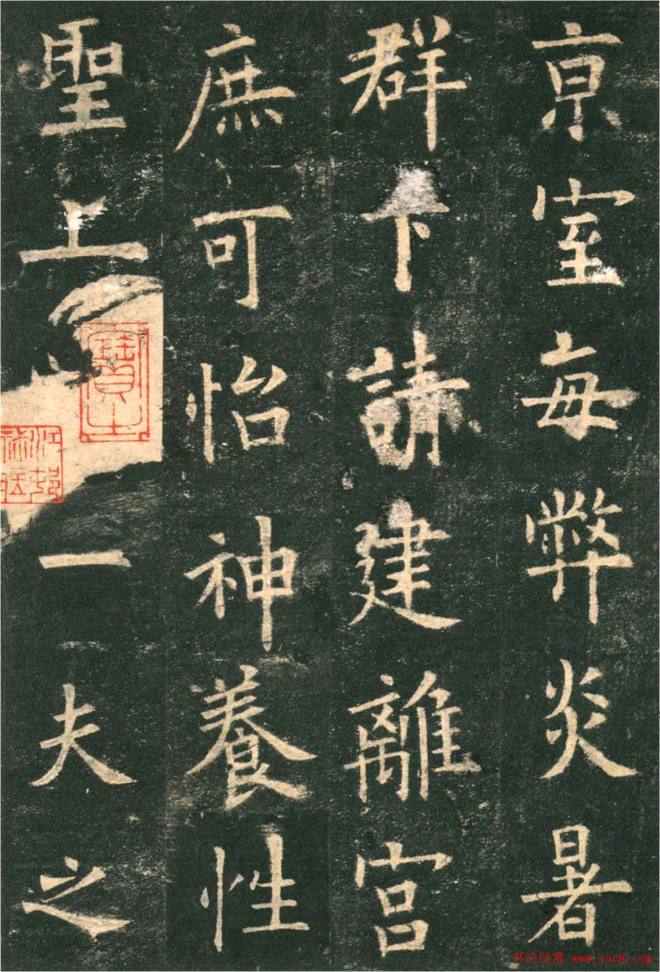 京室每弊炎暑
群下請建離宮
庶可怡神養性
聖上
一夫之
書法欣賞 www.yac8.com